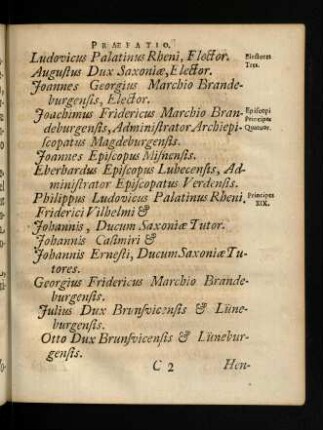 PRÆFATIO.
Ludovicus Palatinus Rheni, Elector.
Electores
Tres.
Augustus Dux Saxoniæ, Elector.
Joannes Georgius Marchio Brande-
burgensis, Elector.
Joachimus Fridericus Marchio Bran-
Episcopi
Principes
Quatuor.
deburgensis, Administrator Archiepi-
scopatus Magdeburgensis.
Joannes Episcopus Misnensis.
Eberhardus Episcopus Lubecensis, Ad-
ministrator Episcopatus Verdensis.
Philippus Ludovicus Palatinus Rheni,
Principes
XIX.
Friderici Vilhelmi &
Johannis, Ducum Saxoniæ Tutor.
Johannis Casimiri &
Johannis Ernesti, Ducum Saxoniæ Tu-
tores.
Georgius Fridericus Marchio Brande-
burgensis.
Julius Dux Brunsvicensis & Lüne-
burgensis.
Otto Dux Brunsvicensis & Lünebur-
gensis.
C 2
Hen-